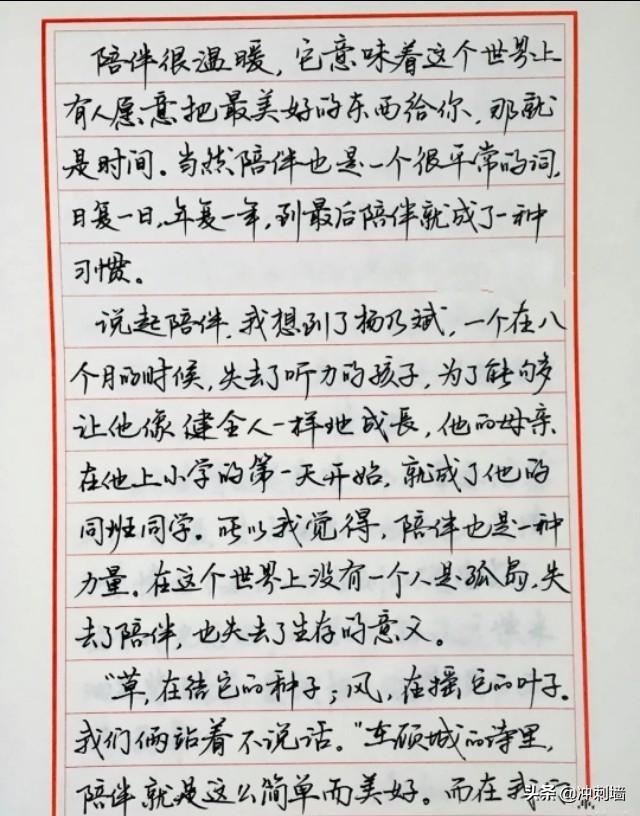 陪伴很温暖，它意味着这个世界上
有人愿意把最美好的东西给你，那就
是时间。当然陪伴也是一个很平常的词，
日复一日，年复一年，到最后陪伴就成了一种
习惯。
说起陪伴，我想到了杨乃斌，一个在八
个月的时候，失去了听力的孩子，为了能够
让他像健全人一样地成長，他的母亲
在他上小学的第一天开始，就成了他的
同班同学。所以我觉得，陪伴也是一种
力量。在这个世界上没有一个人是孤岛，失
去了陪伴，也失去了生存的意义。
“草，在结它的种子；风，在摇它的叶子。
我们俩站着不说话。”在顾城的诗里，
陪伴就是这么简单而美好。而在我
头条 @冲刺墙